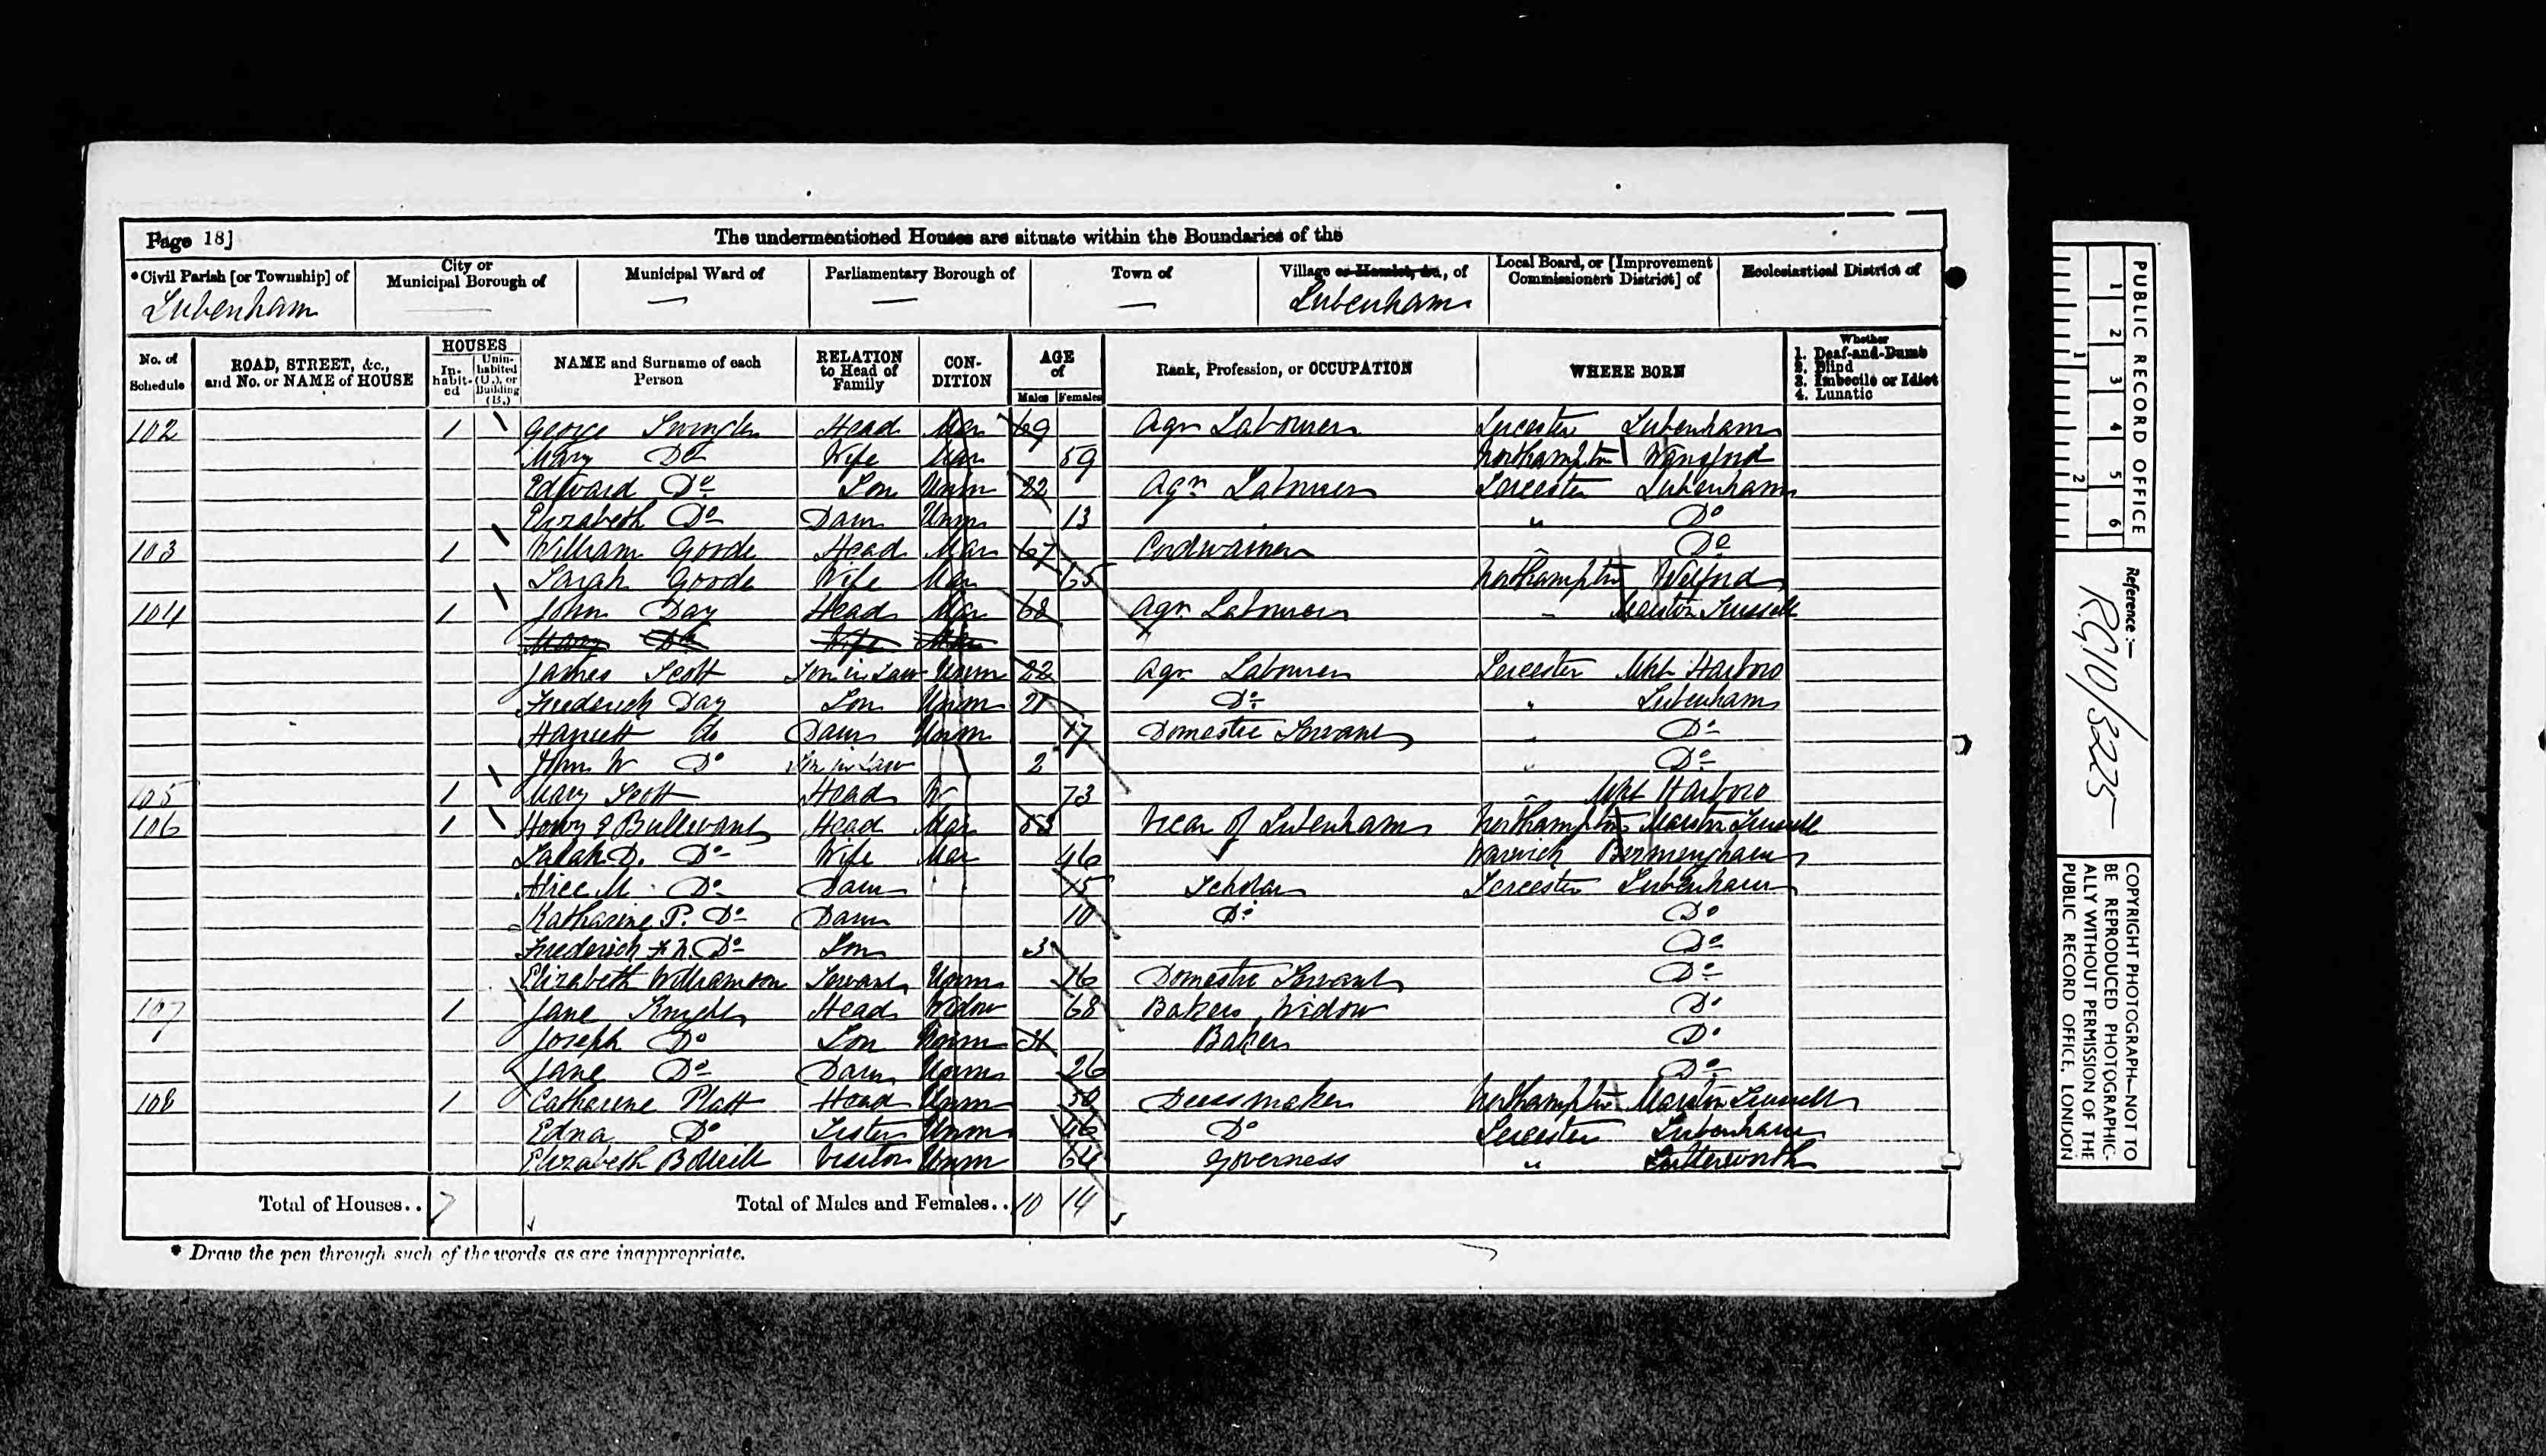 Page 18]
The undermentioned Houses are situate within the Boundaries of the
*Civil Parish [or Township] of
Lubenham
City or Municipal Borough of
Municipal Ward of
—
Parliamentary Borough of
—
Town of
—
Village or Hamlet, &c., of
Lubenham
Local Board, or [Improvement Commissioners District] of
Ecclesiastical District of
No. of Schedule
ROAD, STREET, &c., and No. or NAME of HOUSE
HOUSES
In-habit-ed
Unin-habited (U.), or Building (B.)
NAME and Surname of each Person
RELATION to Head of Family
CON-DITION
AGE of
Males Females
Rank, Profession, or OCCUPATION
WHERE BORN
Whether
1. Deaf-and-Dumb
2. Blind
3. Imbecile or Idiot
4. Lunatic
102 1 George Head Mar 69 Agr Labourer Leicester Lubenham
Mary Do Wife Mar 59 Northampton
Edward Do Son Unm 22 Agr Labourer Leicester Lubenham
Elizabeth Do Daur Unm 13 " Do
103 1 William Goode Head Mar 67 Cordwainer " Do
Sarah Goode Wife Mar 65 Northampton Welford
104 1 John Day Head Mar 68 Agr Labourer " Marston Trussell
Mary Do Wife Mar
James Scott Son in Law Unm 22 Agr Labourer Leicester Mkt Harboro
Frederick Day Son Unm 21 Do " Lubenham
Harriett do Daur Unm 17 Domestic Servant " Do
John W Do Son in Law 2 " Do
105 1 Mary Scott Head W 73 " Mkt Harboro
106 1 Henry J Bullivant Head Mar 53 Vicar of Lubenham Northampton Marston Trussell
Sarah D. Do Wife Mar 46 Warwick Birmingham
Alice M Do Daur 15 Scholar Leicester Lubenham
Katharine P. Do Daur 10 Do Do
Frederick Do Son 3 Do
Elizabeth Williamson Servant Unm 16 Domestic Servant Do
107 1 Jane Knight Head Widow 68 Bakers Widow Do
Joseph Do Son Unm 31 Baker Do
Jane Do Daur Unm 26 Do
108 1 Catharine Platt Head Unm 50 Dressmaker Northampton Marston Trussell
Edna Do Sister Unm 46 Do Leicester Lubenham
Elizabeth Visitor Unm 64 Governess " Lutterworth
Total of Houses.. 7
Total of Males and Females.. 10 14
* Draw the pen through such of the words as are inappropriate.
PUBLIC RECORD OFFICE
1 2 3 4 5 6
1 2
Reference :—
RG10/3225
COPYRIGHT PHOTOGRAPH—NOT TO
BE REPRODUCED PHOTOGRAPHIC-
ALLY WITHOUT PERMISSION OF THE
PUBLIC RECORD OFFICE, LONDON